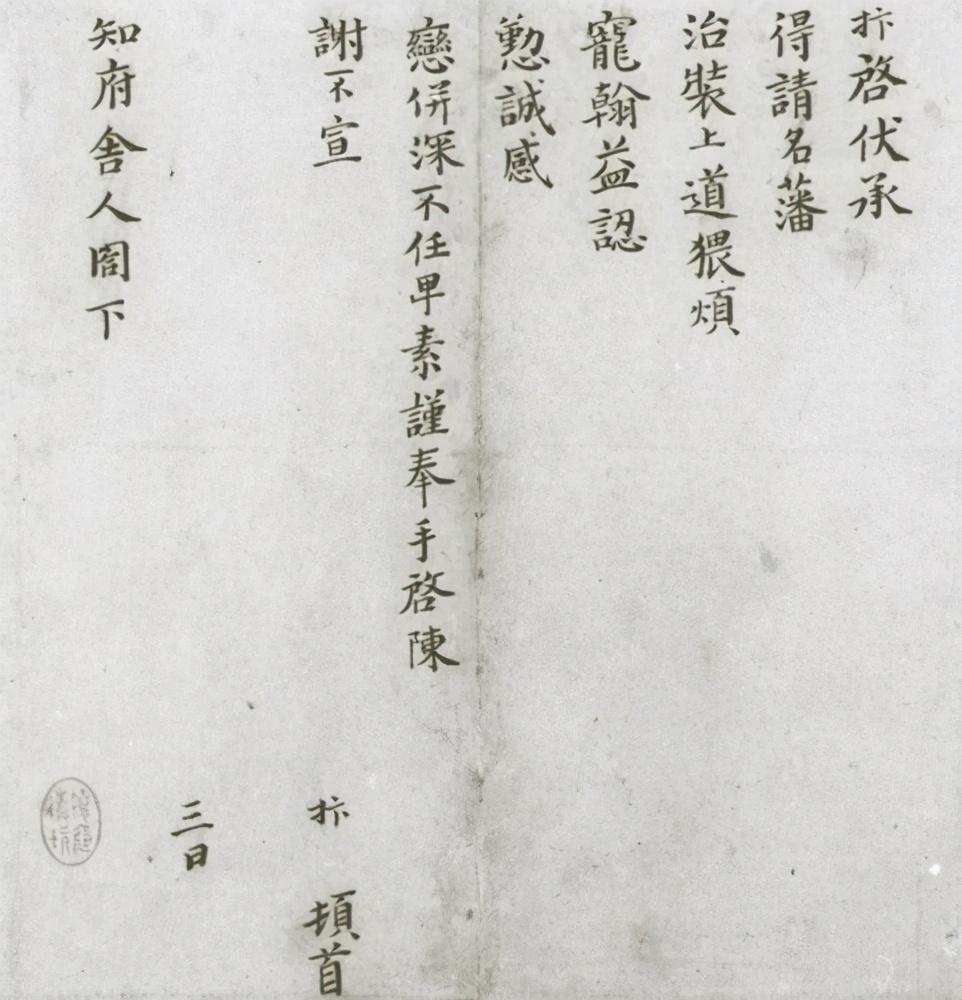 抃啓伏承
得請名藩
治裝上道猥煩
寵翰益認
懃誠感
戀併深不任卑素謹奉手啓陳
謝不宣
抃 頓首
三日
知府舍人閤下